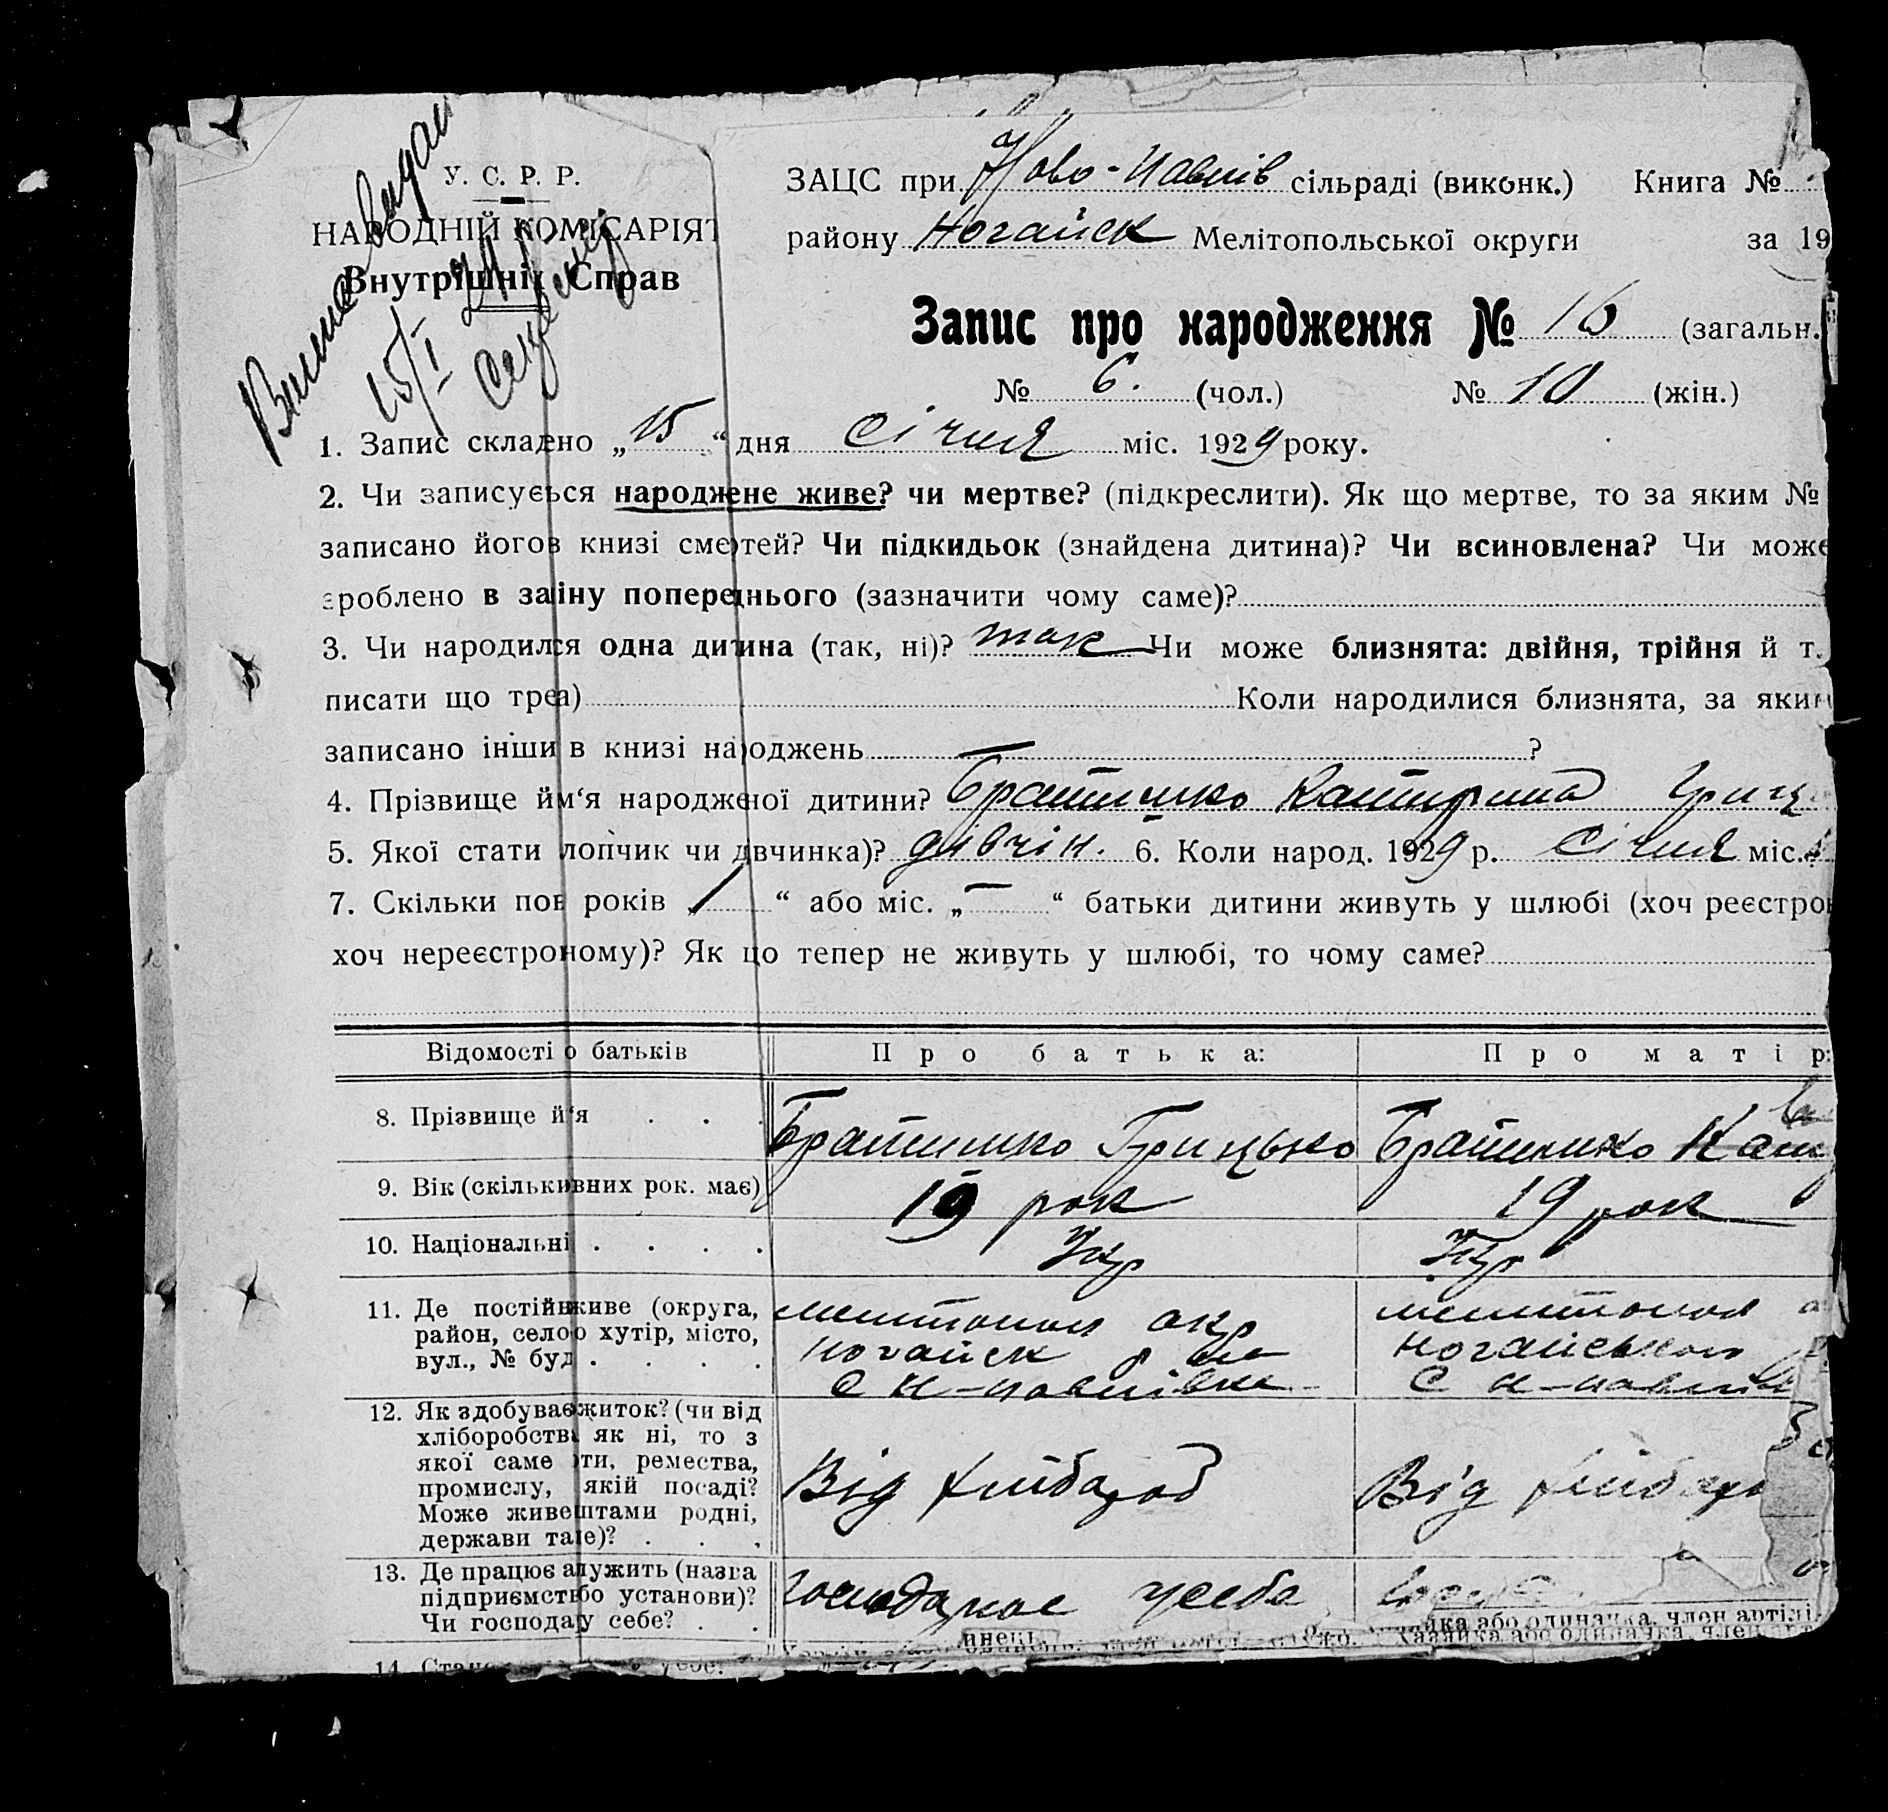 У. С. Р. Р.
НАРОДНІЙ КОМІСАРІЯТ
Внутрішніх Справ
15/I 29 р.
ЗАЦС при Ново-Павлів сільраді (виконк.) Книга №
району Ногайск Мелітопольської округи за 19
Запис про народження № 16 (загальн.
№ 6. (чол.) № 10 (жін.)
1. Запис складено „15“ дня Січня міс. 1929 року.
2. Чи записується народжене живе? чи мертве? (підкреслити). Як що мертве, то за яким №
записано його в книзі смертей? Чи підкидьок (знайдена дитина)? Чи всиновлена? Чи може
зроблено в заміну попереднього (зазначити чому саме)?
3. Чи народилася одна дитина (так, ні)? так Чи може близнята: двійня, трійня й т.
писати що треба) Коли народилися близнята, за яким
записано інших в книзі народжень ?
4. Прізвище йм‘я народженої дитини? Братишко Катирина Гриц
5. Якої статі хлопчик чи дівчинка)? дівчін. 6. Коли народ. 1929 р. Січня міс.
7. Скільки пов років „/“ або міс. „—“ батьки дитини живуть у шлюбі (хоч реєстров
хоч нереєстрованому)? Як що тепер не живуть у шлюбі, то чому саме?
Відомості про батьків Про батька: Про матір:
8. Прізвище й‘я Братишко Грицько Братишко
9. Вік (скільки вних рок. має) 19 рок 19 рок
10. Національні Укр Укр
11. Де постійн живе (округа, мелитопол окр мелитопол
район, село о хутір, місто, ногайск р на ногайського
вул., № буд с н-павлівка с н-павлівк
12. Як здобуває житок? (чи від
хліборобства як ні, то з
якої саме оти, ремества,
промислу, якій посаді? Від хлібороб Від хлібороб
Може живе штами родні,
держави та не)?
13. Де працює служить (назва
підприємств бо установи)? Господарює у себе
Чи господарю у себе?
йка або одиначка, член артілі
Хазяйка або одиначка, член арт
14. Стан